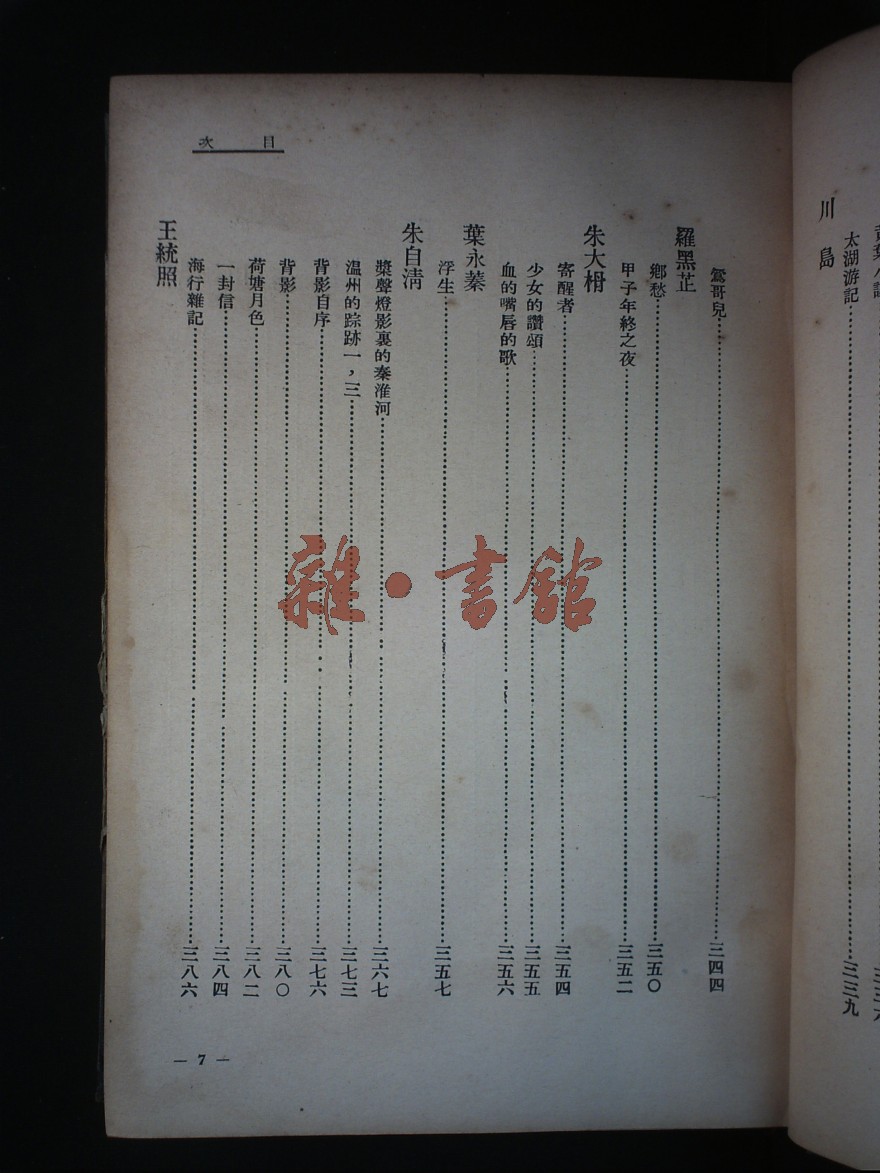 川島
太湖游記……三三九
目次
鴛哥兒……三四四
羅黑芷
鄉愁……三五〇
甲子年終之夜……三五二
朱大枬
寄醒者……三五四
少女的讚頌……三五五
血的嘴唇的歌……三五六
葉永蓁
浮生……三五七
朱自清
槳聲燈影裏的秦淮河……三六七
温州的踪跡一，三……三七三
背影自序……三七六
背影……三八〇
荷塘月色……三八二
一封信……三八四
海行雜記……三八六
王統照
— 7 —
雜·書館